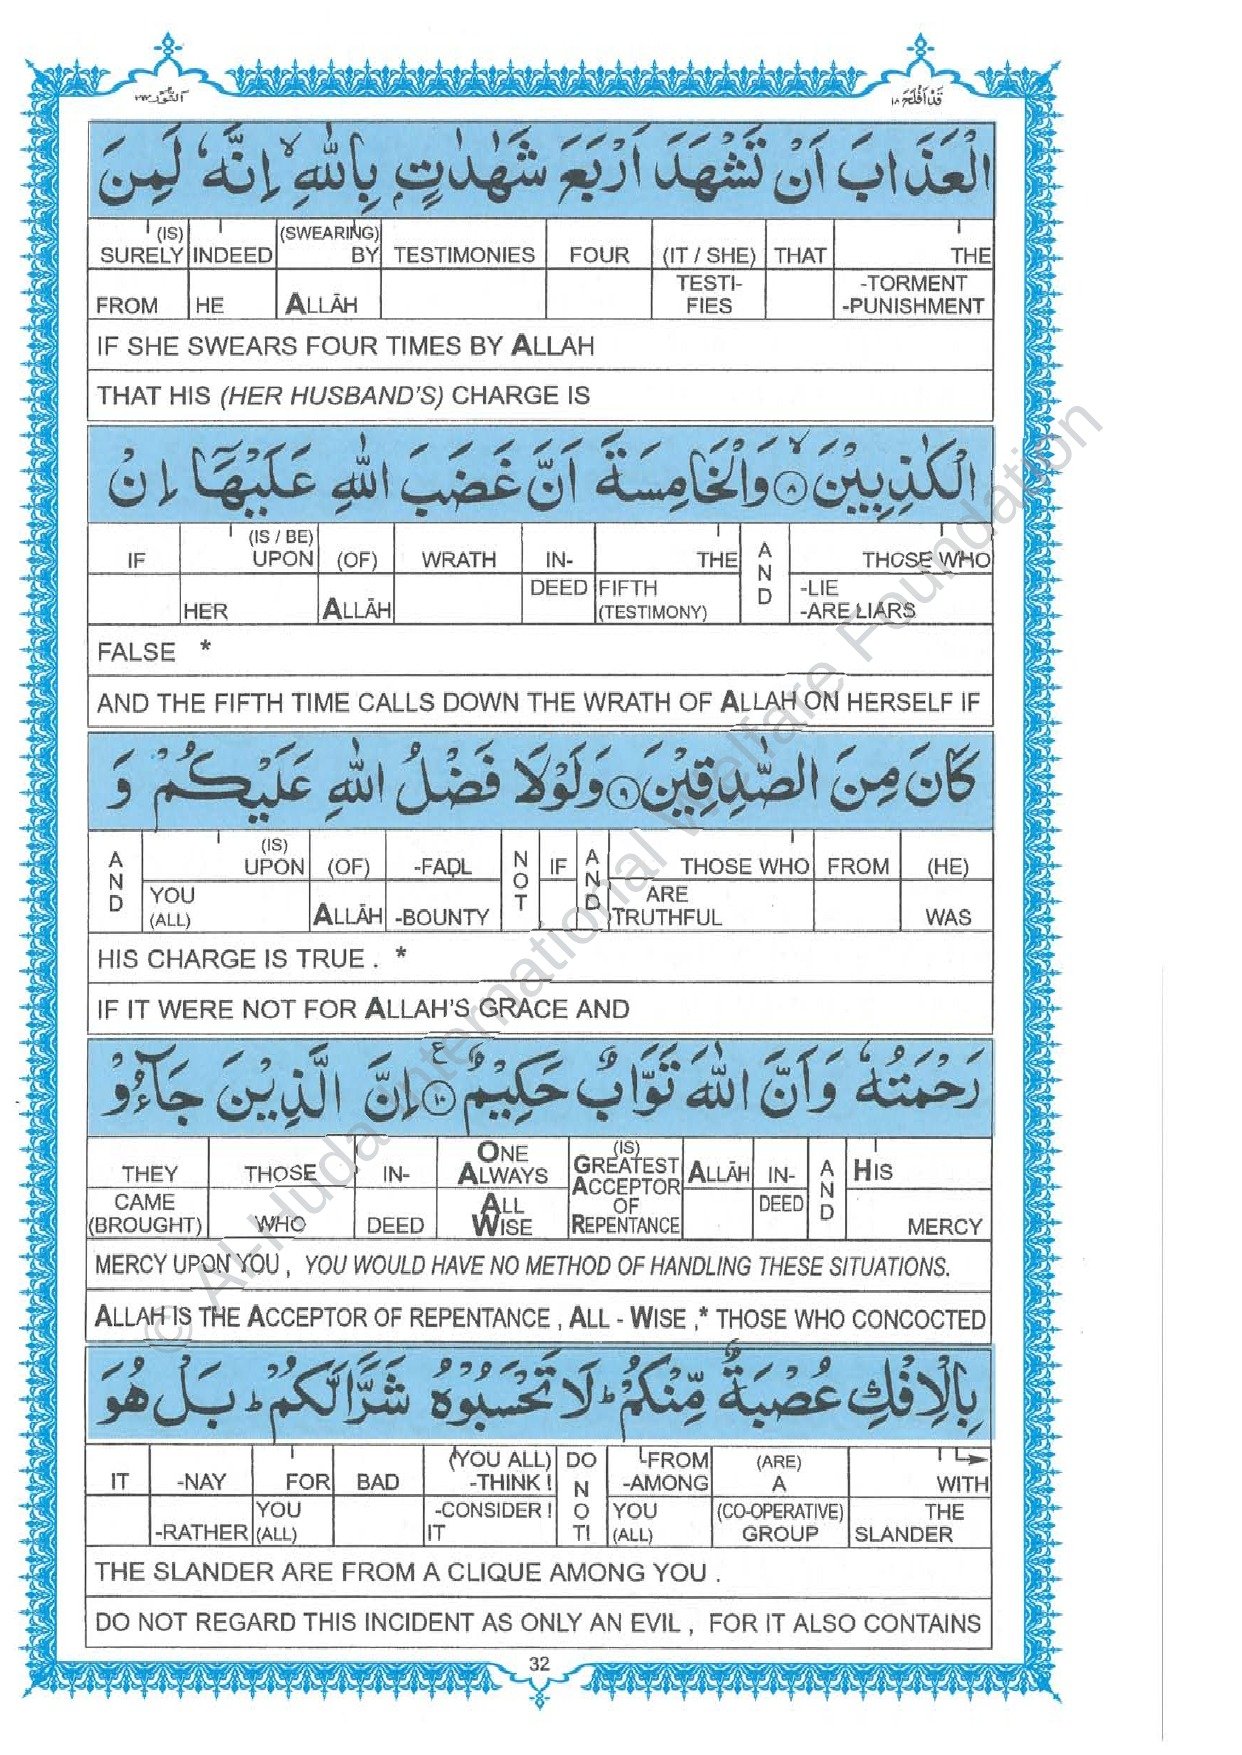 قَدْ اَفْلَحَ ١٨
اَلنُّوْر ٢٤
الْعَذَابَ اَنْ تَشْهَدَ اَرْبَعَ شَهٰدٰتٍۭ بِاللّٰهِ ۙ اِنَّهٗ لَمِنَ
SURELY (IS) INDEED (SWEARING) BY TESTIMONIES FOUR (IT / SHE) THAT THE
FROM HE ALLĀH TESTI-FIES -TORMENT -PUNISHMENT
IF SHE SWEARS FOUR TIMES BY ALLAH
THAT HIS (HER HUSBAND'S) CHARGE IS
الْكٰذِبِيْنَ ۙ ۸ وَالْخَامِسَةَ اَنَّ غَضَبَ اللّٰهِ عَلَيْهَآ اِنْ
IF (IS / BE) UPON (OF) WRATH IN- THE AND THOSE WHO
HER ALLĀH DEED FIFTH (TESTIMONY) -LIE -ARE LIARS
FALSE *
AND THE FIFTH TIME CALLS DOWN THE WRATH OF ALLAH ON HERSELF IF
كَانَ مِنَ الصّٰدِقِيْنَ ۹ وَلَوْلَا فَضْلُ اللّٰهِ عَلَيْكُمْ وَ
AND (IS) UPON (OF) -FAḌL NOT IF AND THOSE WHO FROM (HE)
YOU (ALL) ALLĀH -BOUNTY ARE TRUTHFUL WAS
HIS CHARGE IS TRUE . *
IF IT WERE NOT FOR ALLAH'S GRACE AND
رَحْمَتُهٗ وَاَنَّ اللّٰهَ تَوَّابٌ حَكِيْمٌ ۱۰ ع اِنَّ الَّذِيْنَ جَآءُوْ
THEY THOSE IN- ONE ALWAYS (IS) GREATEST ACCEPTOR ALLĀH IN- AND HIS
CAME (BROUGHT) WHO DEED ALL WISE OF REPENTANCE DEED MERCY
MERCY UPON YOU , YOU WOULD HAVE NO METHOD OF HANDLING THESE SITUATIONS.
ALLAH IS THE ACCEPTOR OF REPENTANCE , ALL - WISE ,* THOSE WHO CONCOCTED
بِالْاِفْكِ عُصْبَةٌ مِّنْكُمْ ؕ لَا تَحْسَبُوْهُ شَرًّا لَّكُمْ ؕ بَلْ هُوَ
IT -NAY FOR BAD (YOU ALL) -THINK ! DO NOT -FROM -AMONG (ARE) A WITH
-RATHER YOU (ALL) -CONSIDER ! IT ! YOU (ALL) (CO-OPERATIVE) GROUP THE SLANDER
THE SLANDER ARE FROM A CLIQUE AMONG YOU .
DO NOT REGARD THIS INCIDENT AS ONLY AN EVIL , FOR IT ALSO CONTAINS
32
© Al-Huda International Welfare Foundation